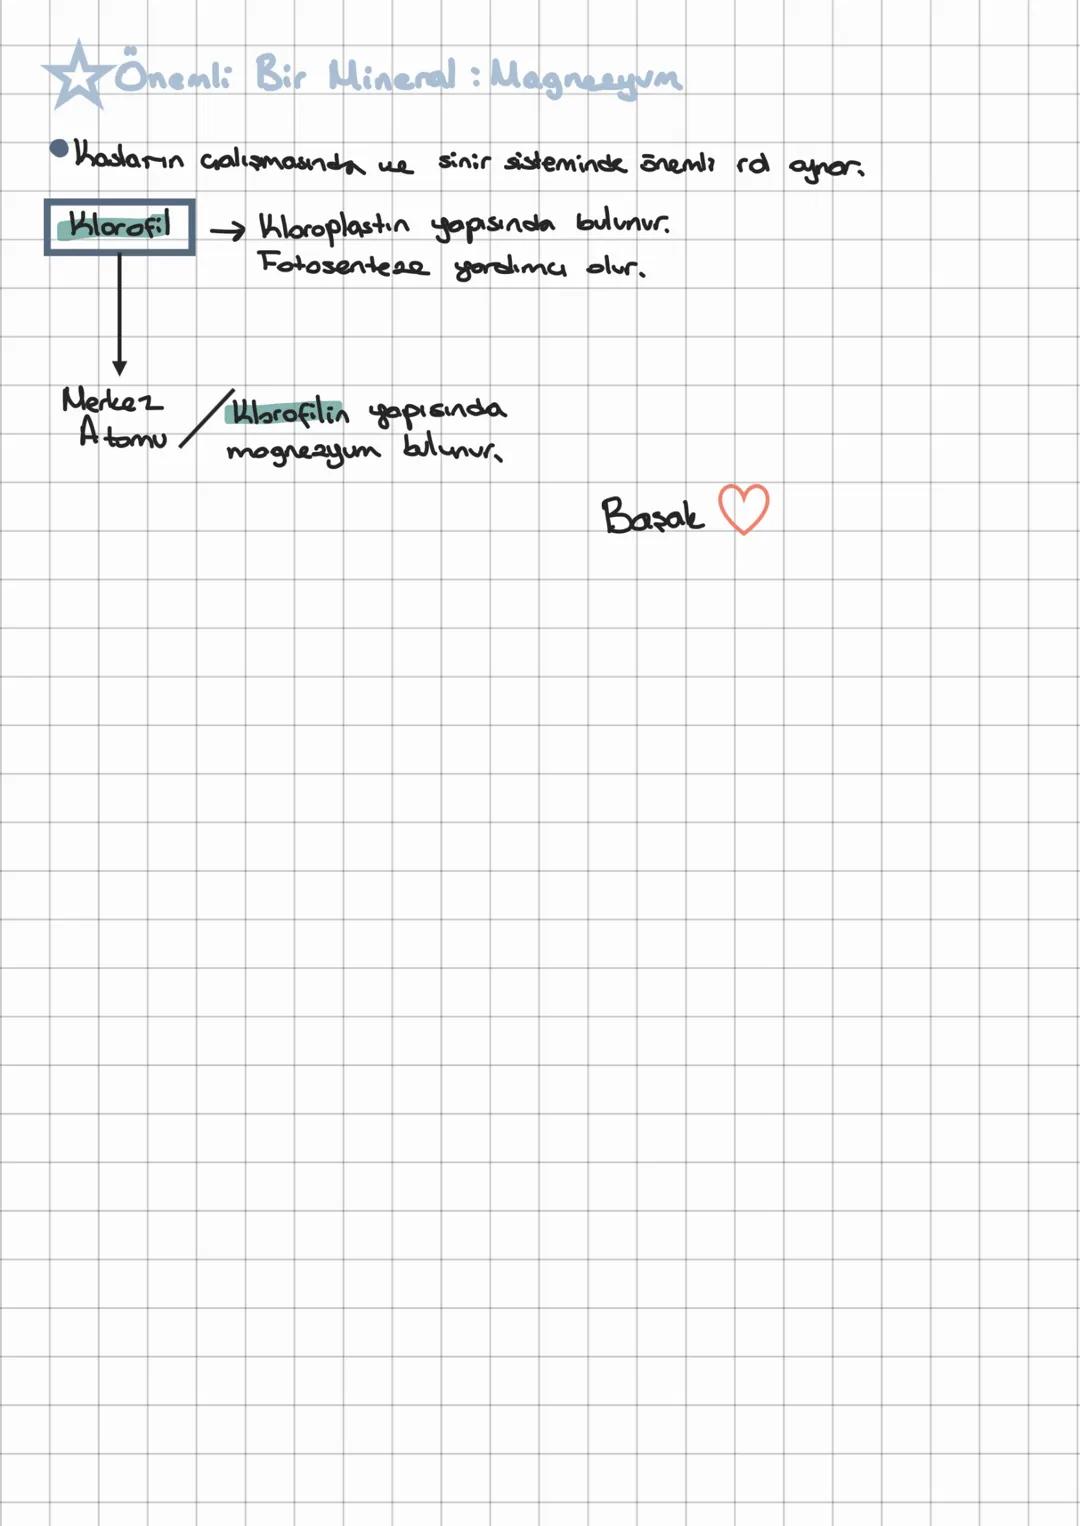 Önemli Bir Mineral : Magnezyum
Kasların çalışmasında ve sinir sisteminde önemli rol oynar.
Klorofil → Kloroplastın yapısında bulunur.
Fotosenteze yardımcı olur.
Merkez
Atomu
Klorofilin yapısında
magnezyum bulunur.
Başak